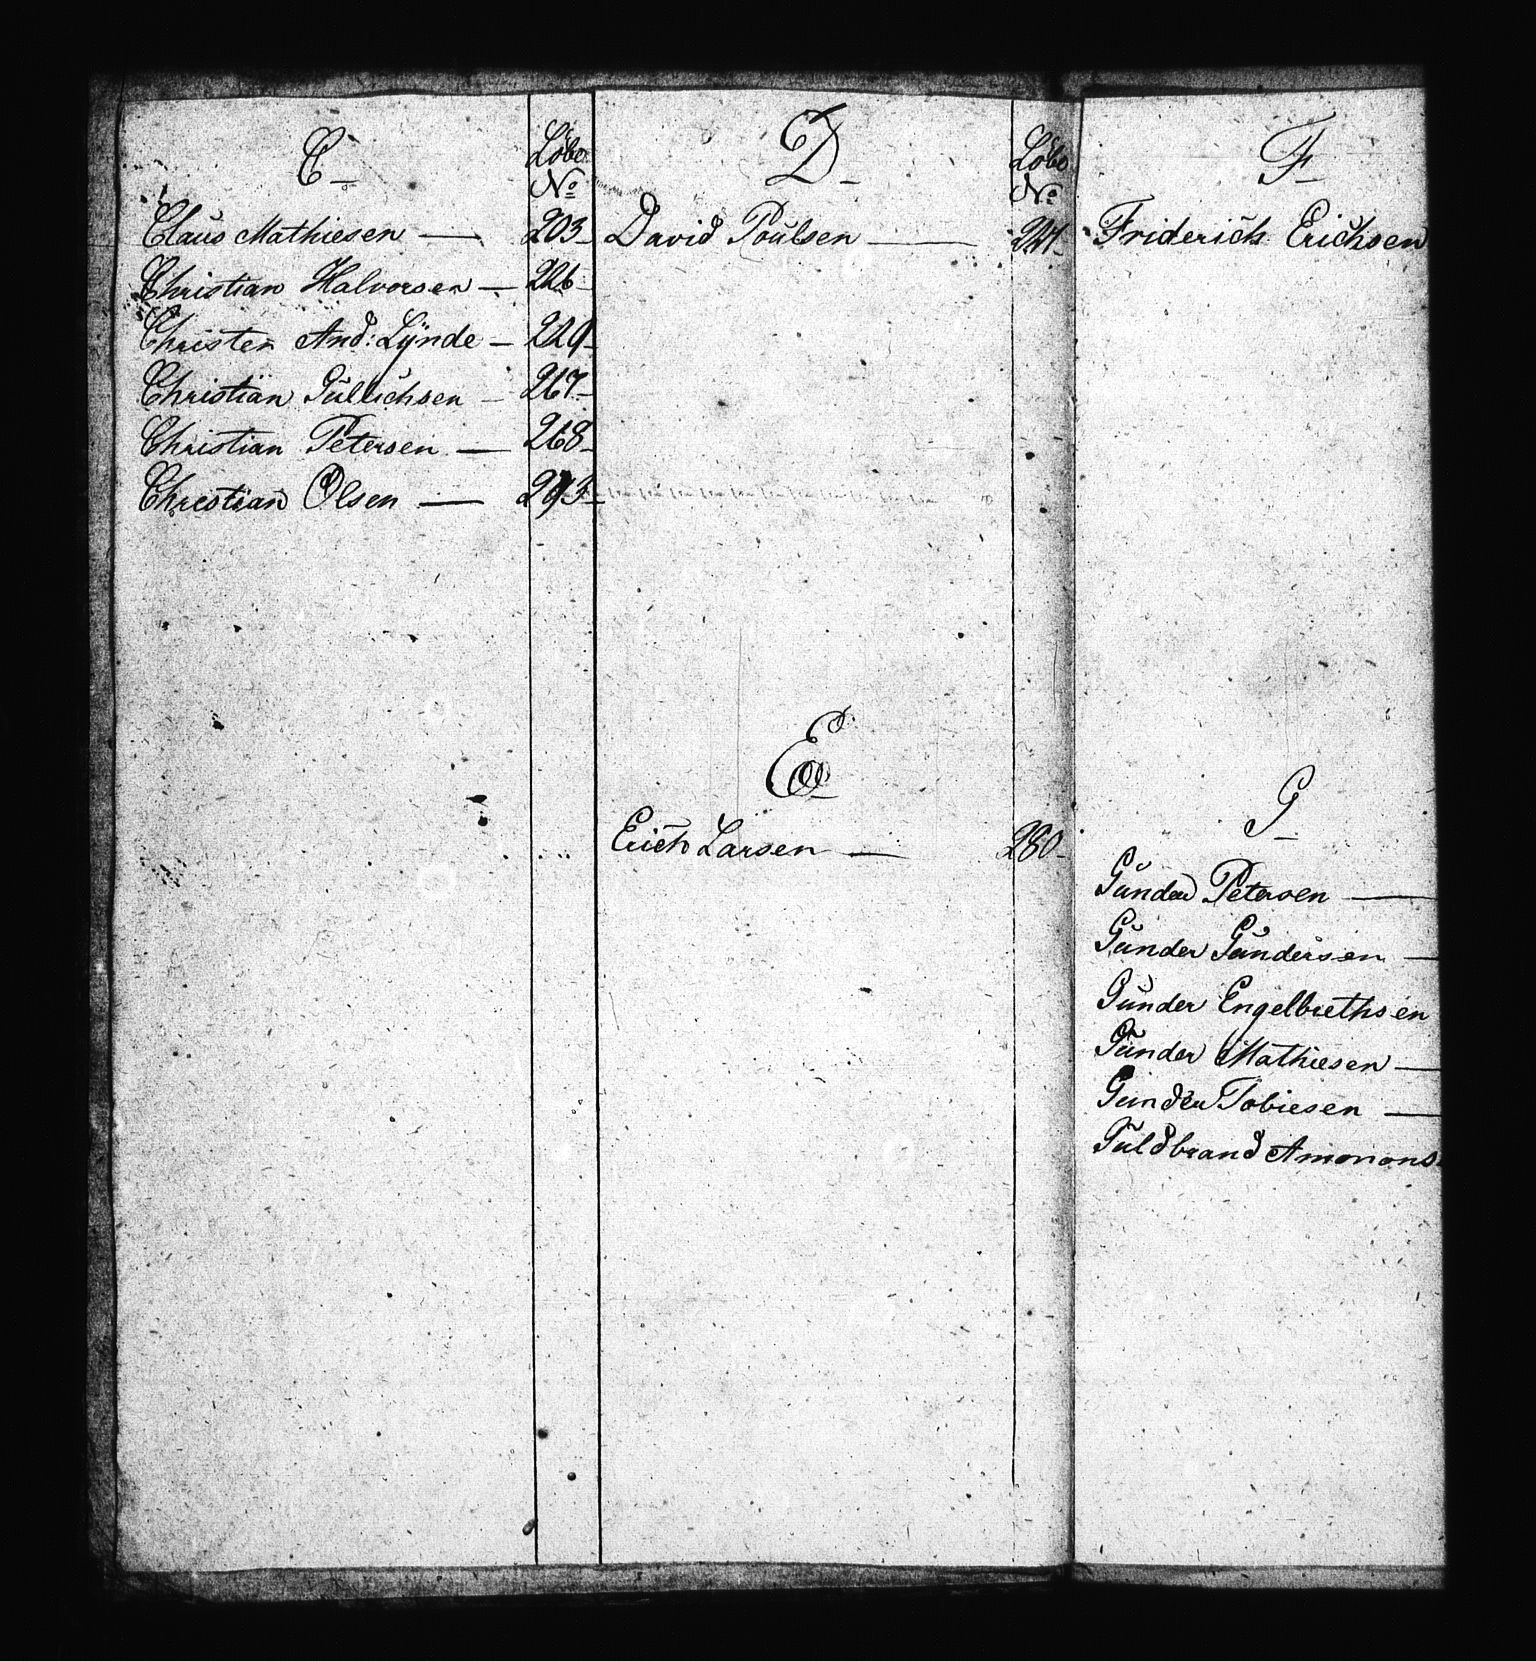 C
Löbe
No
Claus Mathiesen — 203
Christian Halvorsen — 226
Christen And: Lÿnde — 229
Christian Tullichsen — 267
Christian Petersen — 268
Christian Olsen — 293
D
Löbe
No
David Poulsen — 227
E
Erich Larsen — 280
F
Friderich Erichsen
G
Gunder Petersen —
Gunder Gundersen —
Gunder Engelbrethsen
Gunder Mathiesen —
Gunder Tobiesen —
Guldbrand Amonons